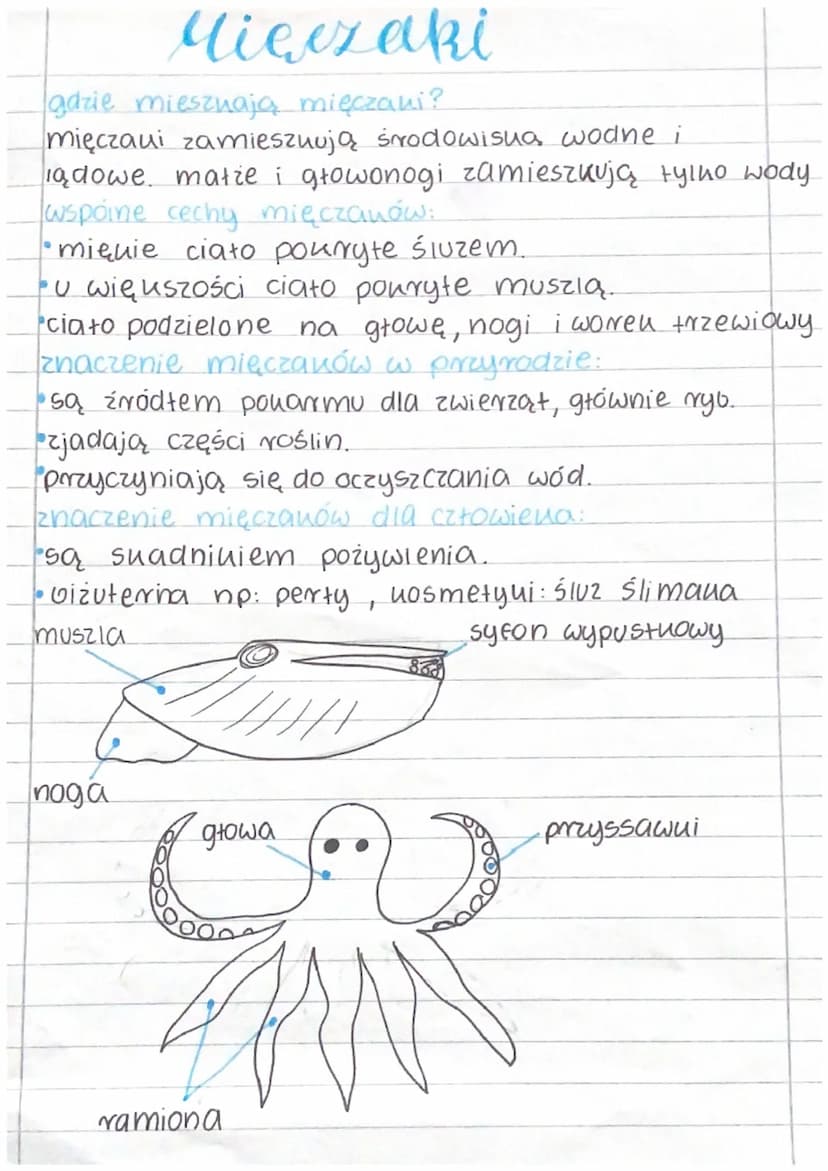 Mięczaki
gdzie mieszkają mięczaki?
mięczaki zamieszkują środowiska wodne i
lądowe. małże i głowonogi zamieszkują tylko wody
wspólne cechy mięczaków:
•miękie ciało pokryte śluzem.
•u większości ciało pokryte muszlą.
•ciało podzielone na głowę, nogi i worek trzewiowy
znaczenie mięczaków w przyrodzie:
•są źródłem pokarmu dla zwierząt, głównie ryb.
•zjadają części roślin.
•przyczyniają się do oczyszczania wód.
znaczenie mięczaków dla człowieka:
•są składnikiem pożywienia.
•biżuteria np: perły, kosmetyki: śluz ślimaka
muszla
syfon wypustkowy
noga
głowa
przyssawki
ramiona